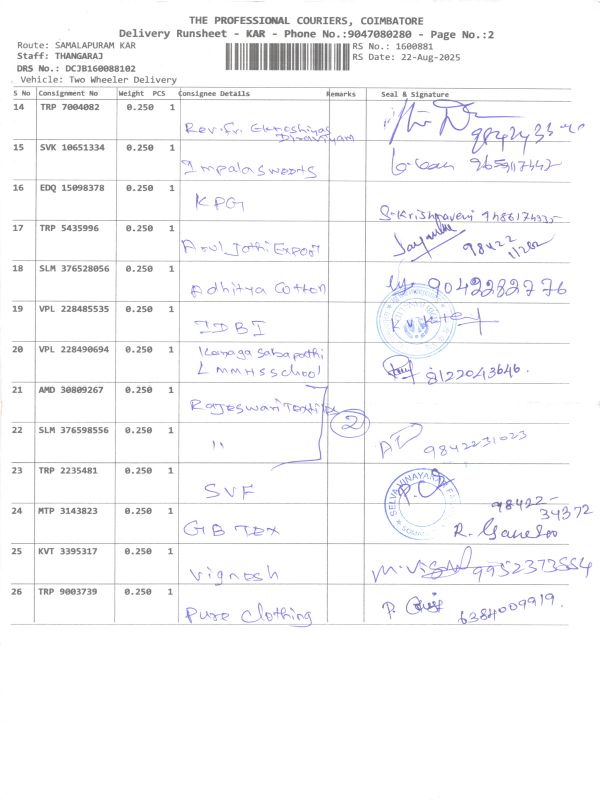 THE PROFESSIONAL COURIERS, COIMBATORE
Delivery Runsheet - KAR - Phone No.:9047080280 - Page No.:2
Route: SAMALAPURAM KAR RS No.: 1600881
Staff: THANGARAJ RS Date: 22-Aug-2025
DRS No.: DCJB160088102
Vehicle: Two Wheeler Delivery
S No Consignment No Weight PCS Consignee Details Remarks Seal & Signature
14 TRP 7004082 0.250 1
Rev. Fr.
15 SVK 10651334 0.250 1
16 EDQ 15098378 0.250 1
KPG S-Krishnaveni
17 TRP 5435996 0.250 1
Arul Jothi Export 98422
18 SLM 376528056 0.250 1
Adhitya Cotton 9042282776
19 VPL 228485535 0.250 1
IDBI
20 VPL 228490694 0.250 1 Kanaga sabapathi
L MMHSS chool 8122043646.
21 AMD 30809267 0.250 1
Rajeswari Textiles 2
22 SLM 376598556 0.250 1
" 9842231023
23 TRP 2235481 0.250 1
SVF SELVAVINAYAGAR
24 MTP 3143823 0.250 1 98422-
34372
GB TEX R. Ganesan
25 KVT 3395317 0.250 1
Vignesh 9952373554
26 TRP 9003739 0.250 1
Pure Clothing 6384009919.